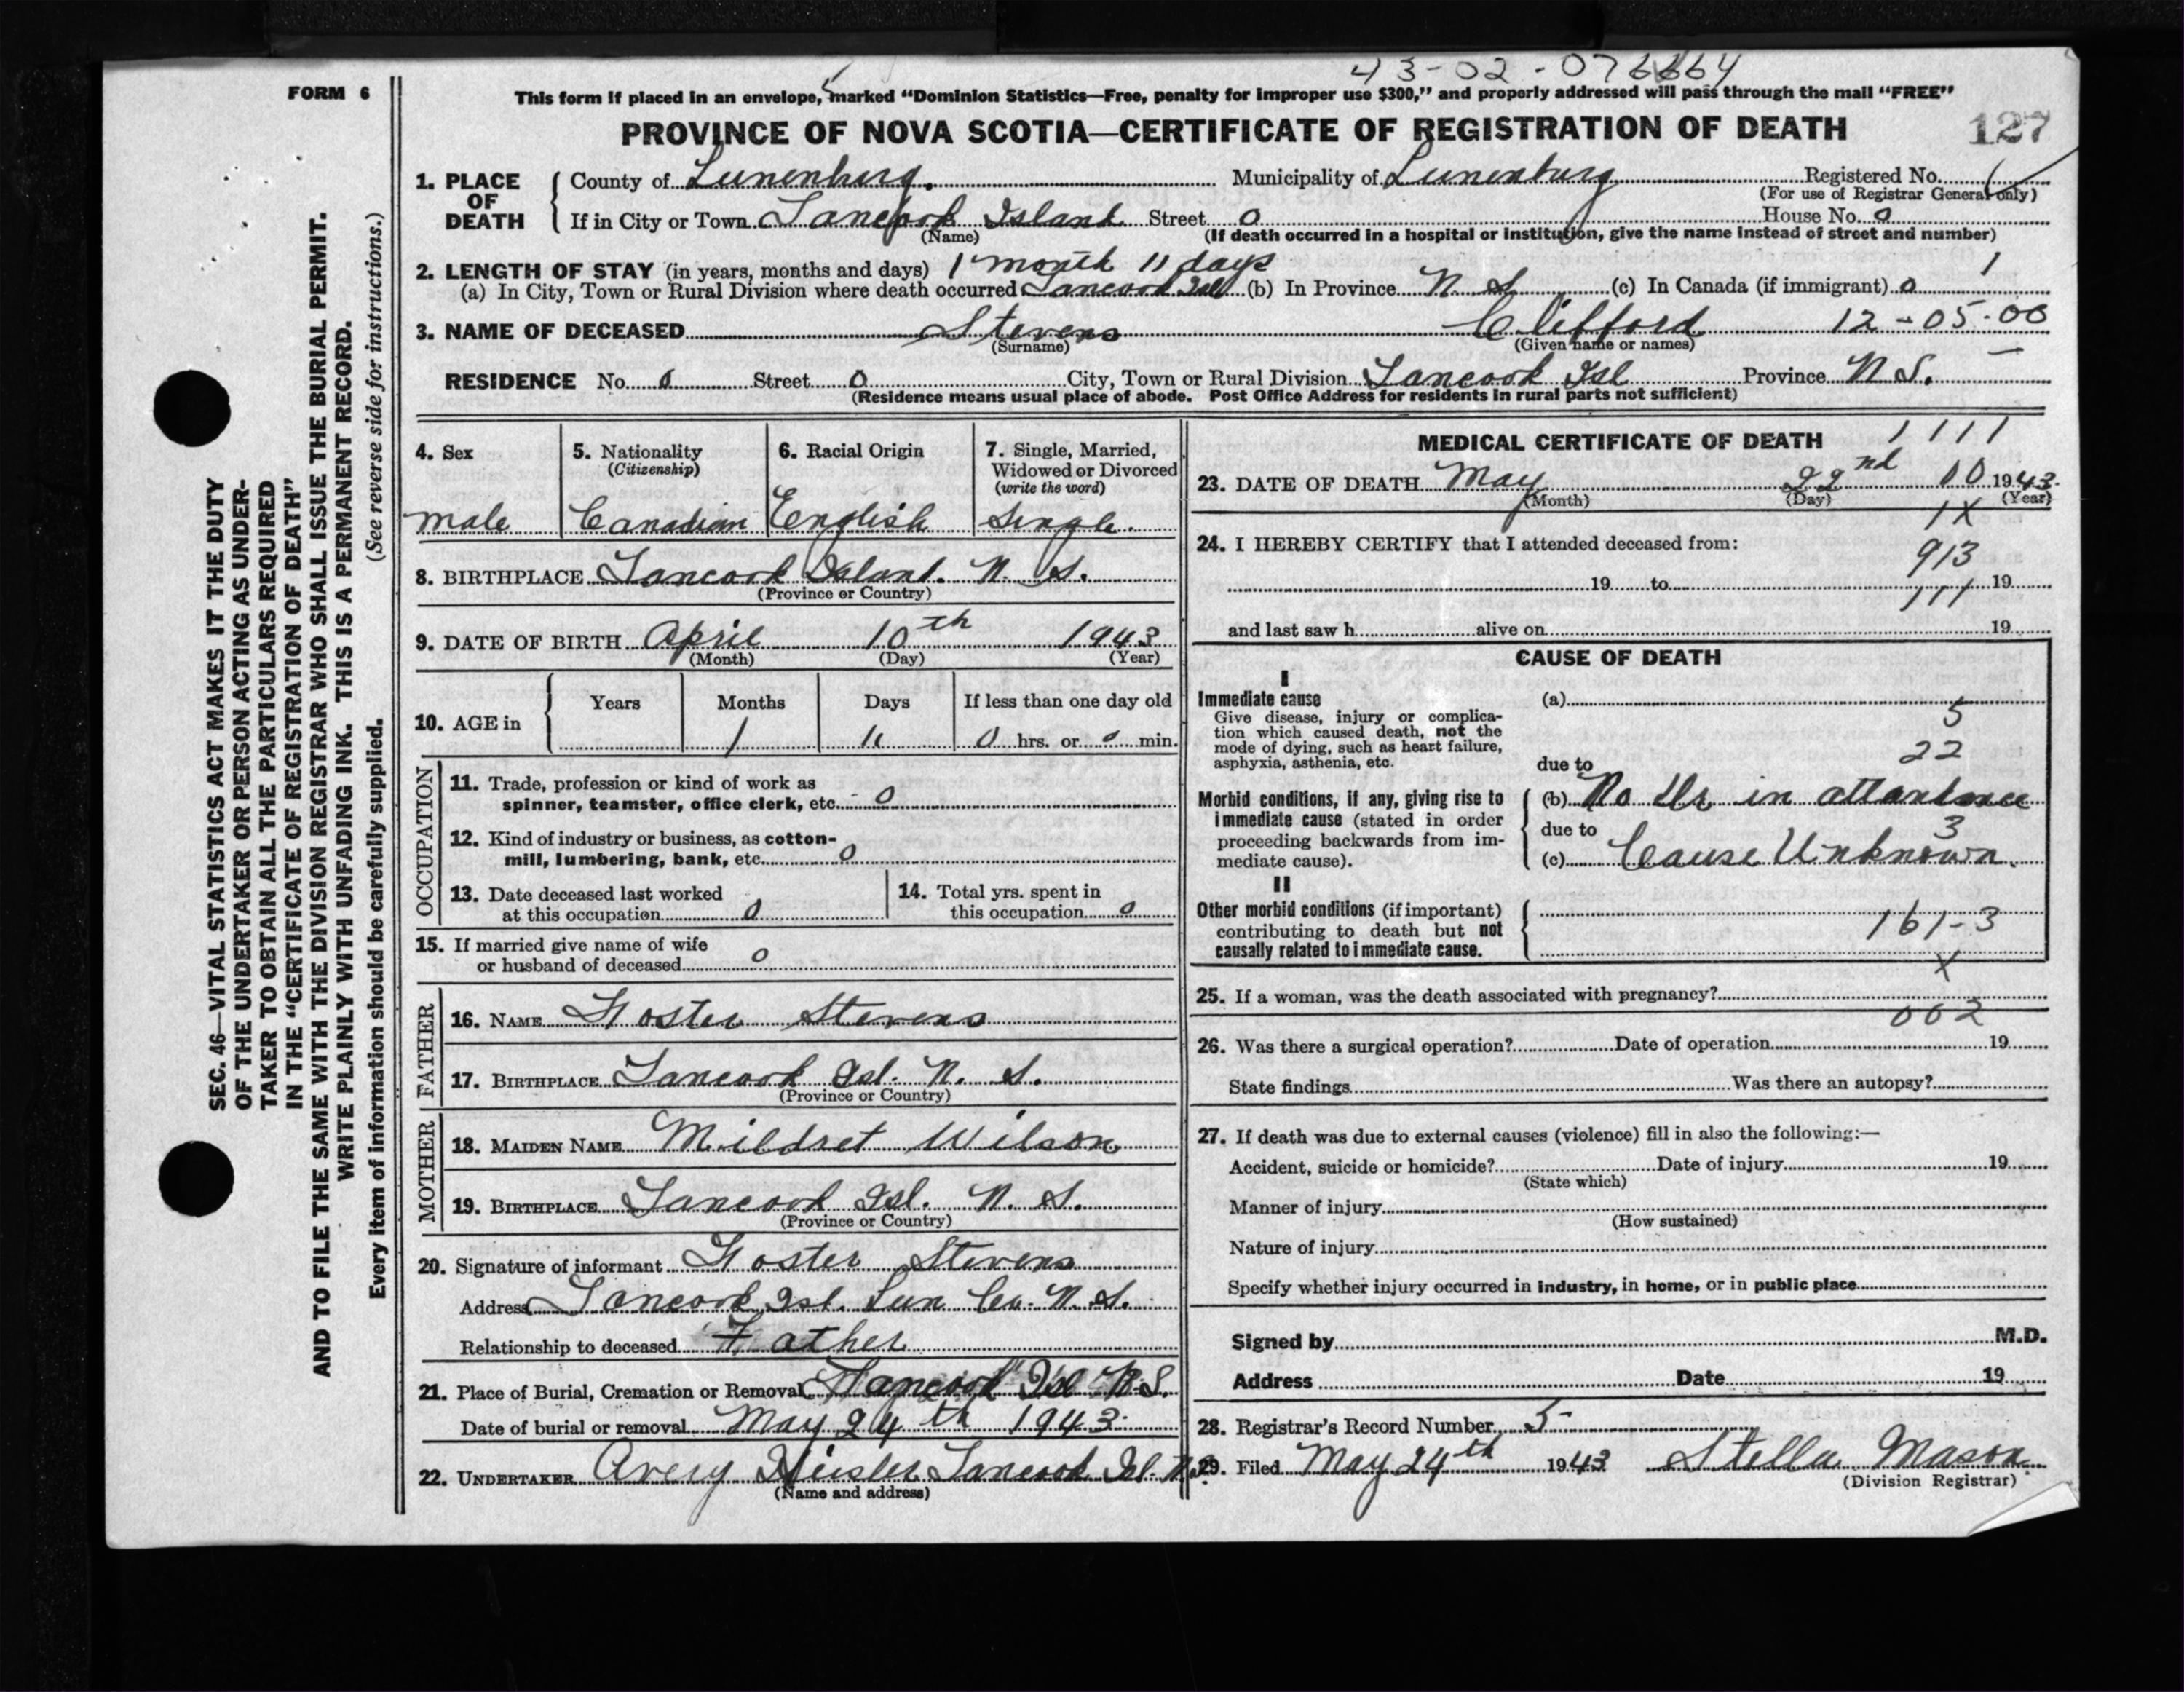 43-02-076664
FORM 6
This form if placed in an envelope, marked "Dominion Statistics—Free, penalty for improper use $300," and properly addressed will pass through the mail "FREE"
PROVINCE OF NOVA SCOTIA—CERTIFICATE OF REGISTRATION OF DEATH 127
1. PLACE OF DEATH
County of Lunenburg. Municipality of Lunenburg Registered No.
(For use of Registrar General only)
If in City or Town Tancook Island Street 0 House No. 0
(Name) (If death occurred in a hospital or institution, give the name instead of street and number)
2. LENGTH OF STAY (in years, months and days) 1 month 11 days
(a) In City, Town or Rural Division where death occurred Tancook Isl (b) In Province N S (c) In Canada (if immigrant) 0 1
3. NAME OF DECEASED Stevens Clifford 12-05-00
(Surname) (Given name or names)
RESIDENCE No. 0 Street 0 City, Town or Rural Division Tancook Isl Province N.S.
(Residence means usual place of abode. Post Office Address for residents in rural parts not sufficient)
4. Sex
male
5. Nationality
(Citizenship)
Canadian
6. Racial Origin
English
7. Single, Married,
Widowed or Divorced
(write the word)
Single.
8. BIRTHPLACE Tancook Island. N. S.
(Province or Country)
9. DATE OF BIRTH April 10th 1943
(Month) (Day) (Year)
10. AGE in
Years Months Days If less than one day old
1 11 0 hrs. or 0 min.
OCCUPATION
11. Trade, profession or kind of work as
spinner, teamster, office clerk, etc. 0
12. Kind of industry or business, as cotton-
mill, lumbering, bank, etc. 0
13. Date deceased last worked
at this occupation 0
14. Total yrs. spent in
this occupation 0
15. If married give name of wife
or husband of deceased 0
FATHER
16. NAME Foster Stevens
17. BIRTHPLACE Tancook Isl. N. S.
(Province or Country)
MOTHER
18. MAIDEN NAME Mildret Wilson
19. BIRTHPLACE Tancook Isl. N. S.
(Province or Country)
20. Signature of informant Foster Stevens
Address Tancook Isl. Lun Co. N. S.
Relationship to deceased Father
21. Place of Burial, Cremation or Removal Tancook Isl N.S.
Date of burial or removal May 24th 1943
22. UNDERTAKER Avery Heisler Tancook Isl. N.S.
(Name and address)
MEDICAL CERTIFICATE OF DEATH 1111
23. DATE OF DEATH May 22nd 00 1943
(Month) (Day) (Year)
1X
24. I HEREBY CERTIFY that I attended deceased from:
913
19 to 19
111
and last saw h alive on 19
CAUSE OF DEATH
I
Immediate cause
Give disease, injury or complica-
tion which caused death, not the
mode of dying, such as heart failure,
asphyxia, asthenia, etc.
(a)
5
22
due to
Morbid conditions, if any, giving rise to
immediate cause (stated in order
proceeding backwards from im-
mediate cause).
(b) No Dr in attantance
due to 3
(c) Cause Unknown.
II
Other morbid conditions (if important)
contributing to death but not
causally related to immediate cause.
161-3
X
25. If a woman, was the death associated with pregnancy?
002
26. Was there a surgical operation? Date of operation 19
State findings Was there an autopsy?
27. If death was due to external causes (violence) fill in also the following:—
Accident, suicide or homicide? Date of injury 19
(State which)
Manner of injury
(How sustained)
Nature of injury
Specify whether injury occurred in industry, in home, or in public place
Signed by M.D.
Address Date 19
28. Registrar's Record Number 5
29. Filed May 24th 1943 Stella Mason
(Division Registrar)
SEC. 46—VITAL STATISTICS ACT MAKES IT THE DUTY
OF THE UNDERTAKER OR PERSON ACTING AS UNDER-
TAKER TO OBTAIN ALL THE PARTICULARS REQUIRED
IN THE "CERTIFICATE OF REGISTRATION OF DEATH"
AND TO FILE THE SAME WITH THE DIVISION REGISTRAR WHO SHALL ISSUE THE BURIAL PERMIT.
WRITE PLAINLY WITH UNFADING INK. THIS IS A PERMANENT RECORD.
Every item of information should be carefully supplied. (See reverse side for instructions.)